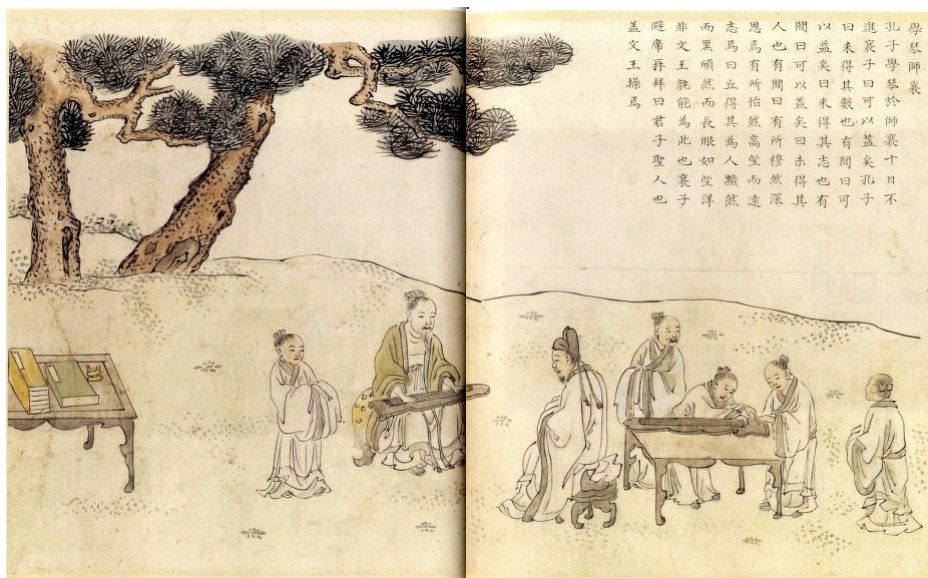 學琴師襄
孔子學琴於師襄十日不
進襄子曰可以益矣孔子
曰未得其數也有間曰可
以益矣曰未得其志也有
間曰可以益矣曰未得其
人也有間曰有所穆然深
思焉有所怡然高望而遠
志焉曰丘得其為人黯然
而黑頎然而長眼如望洋
非文王孰能為此也襄子
避席再拜曰君子聖人也
盖文王操焉